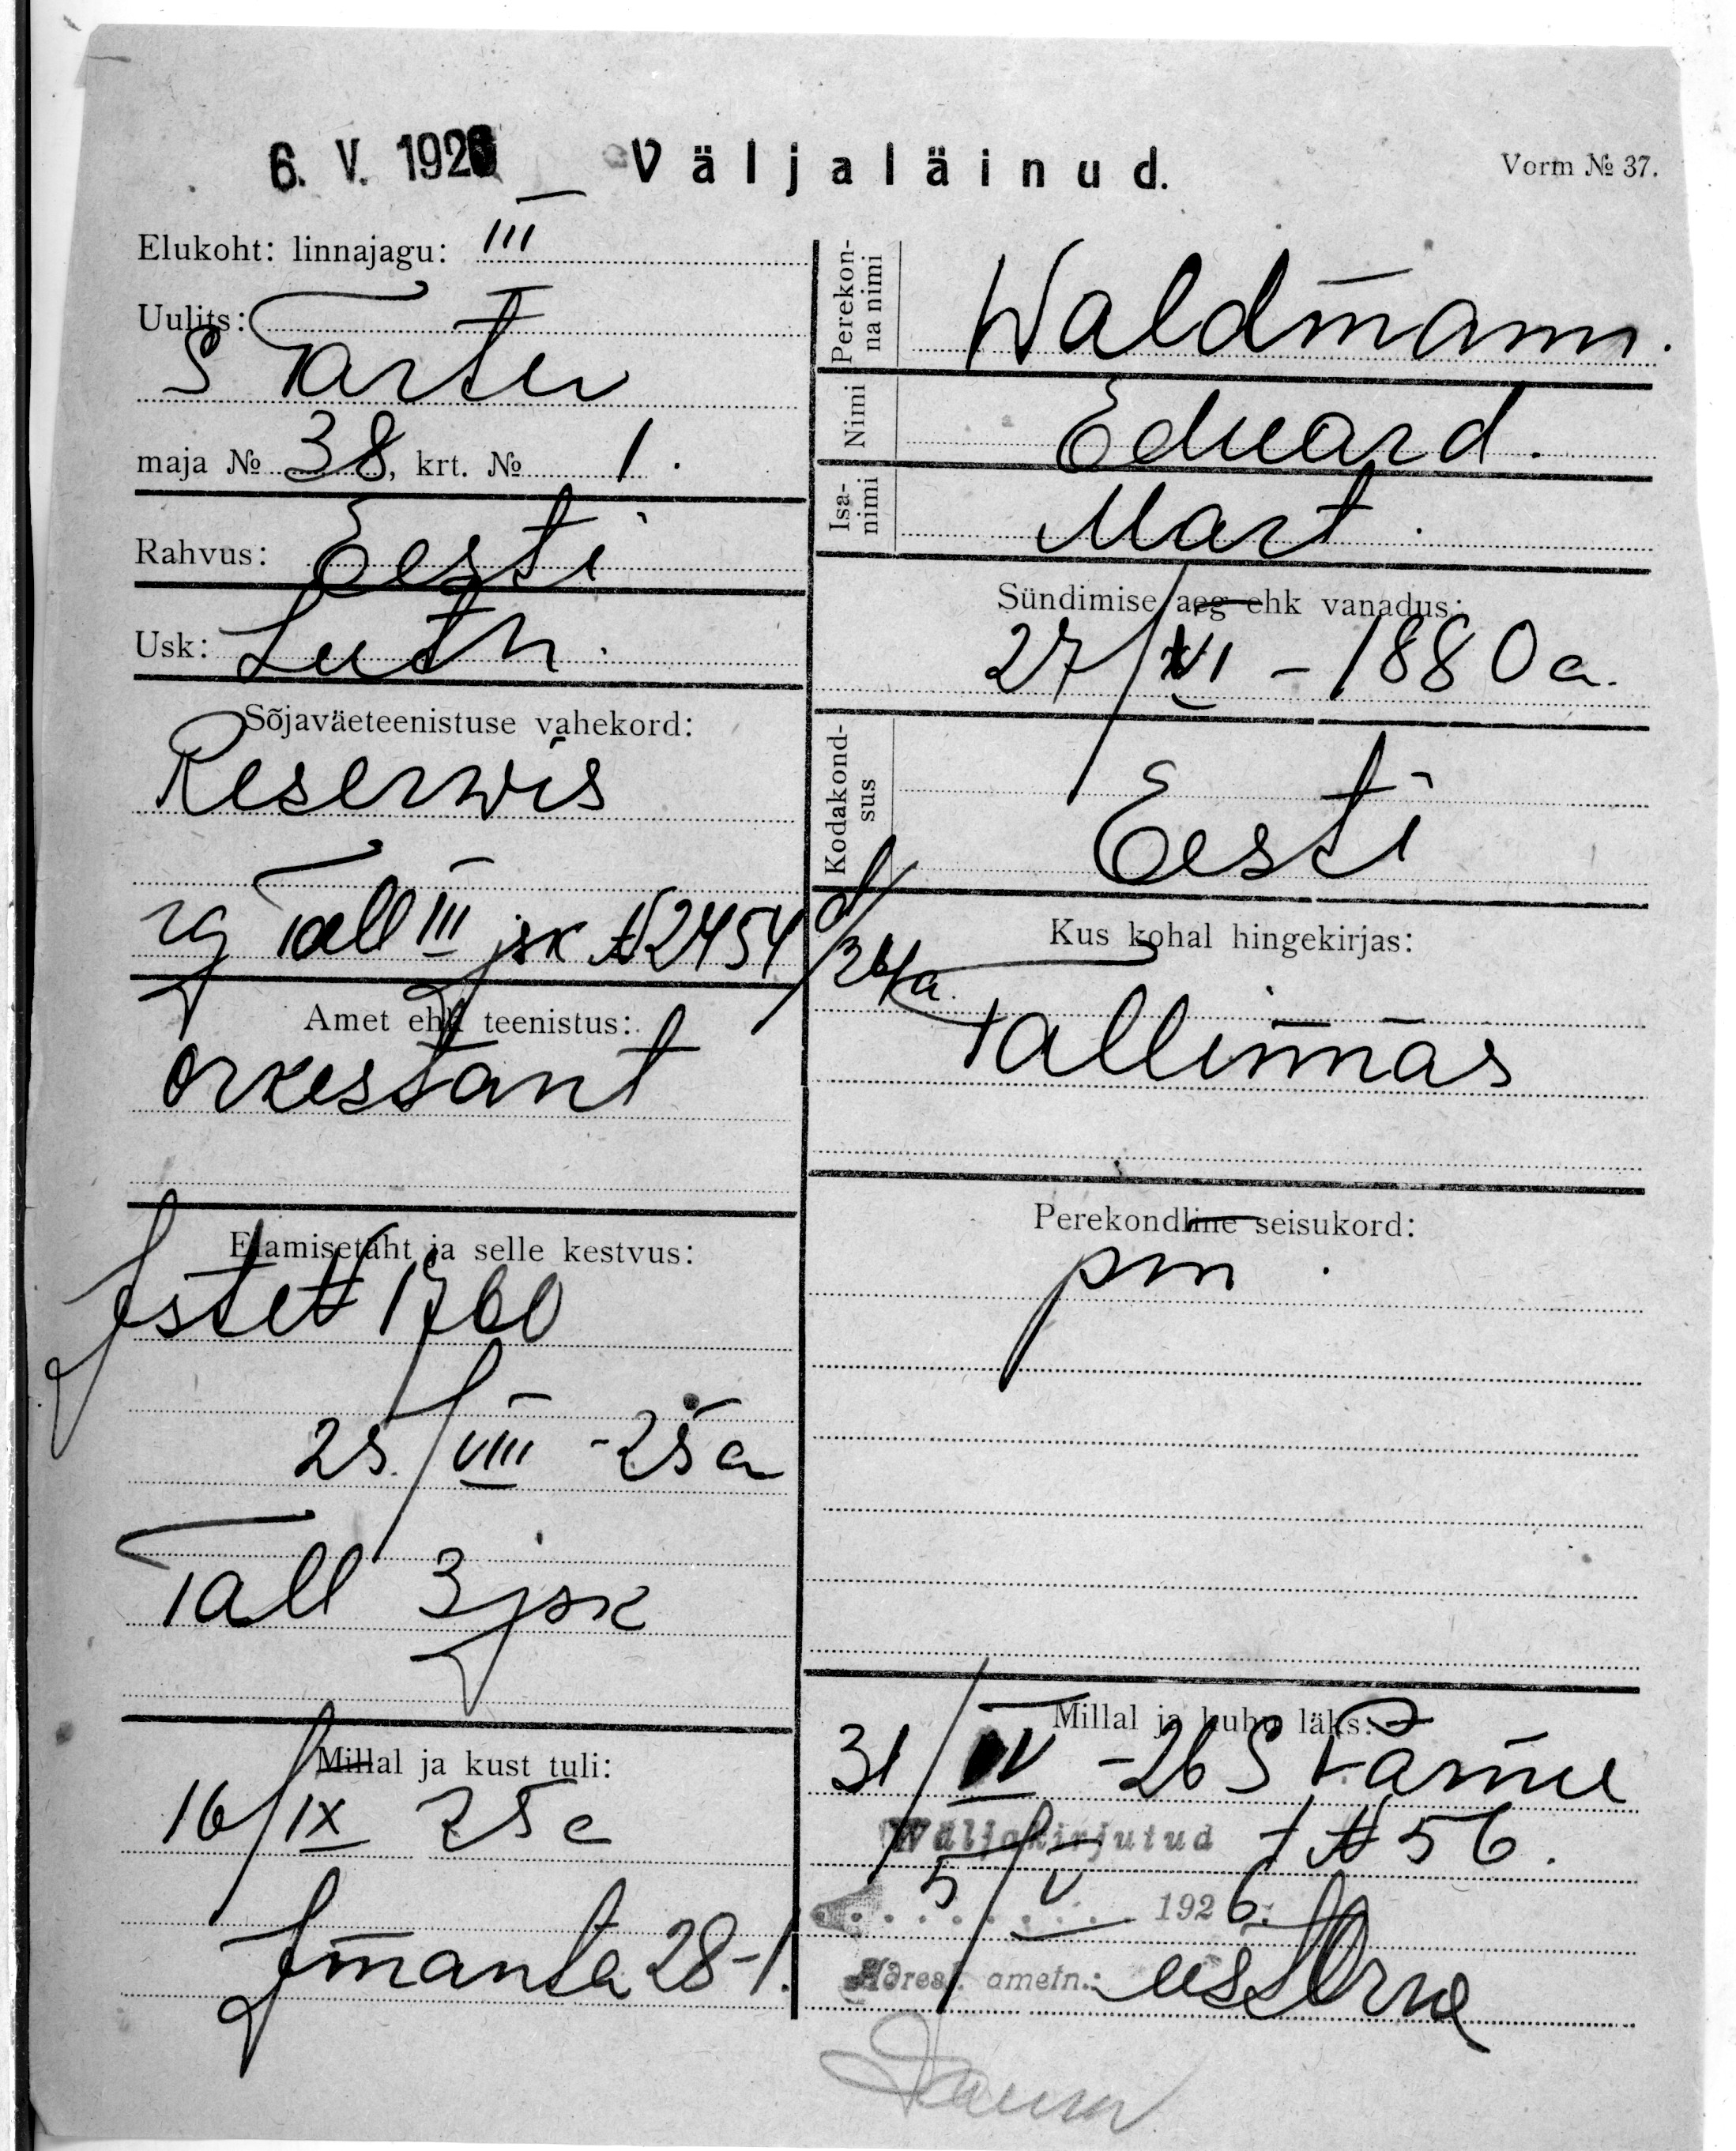 6. V. 1926
Väljaläinud.
Vorm № 37.
Elukoht: linnajagu: III
Uulits:
S Tartu
maja № 38, krt. № 1.
Rahvus: Eesti
Usk: Luth.
Sõjaväeteenistuse vahekord:
Reserwis
Tall III jsk № 2454
Amet ehk teenistus:
orkestant
Elamisetäht ja selle kestvus:
1760
25/VIII - 25 a
Tall 3 jsk
Millal ja kust tuli:
16/IX 25 a
Imanta 28-1.
Perekonna nimi
Waldmann.
Nimi
Eduard.
Isanimi
Mart.
Sündimise aeg ehk vanadus:
27/XI - 1880 a.
Kodakondsus
Eesti
Kus kohal hingekirjas:
Tallinnas
Perekondline seisukord:
Millal ja kuhu läks:
31/IV - 26 S Pärnu
Wäljakirjutud
t № 56.
5/V 1926.
Adres. ametn.: